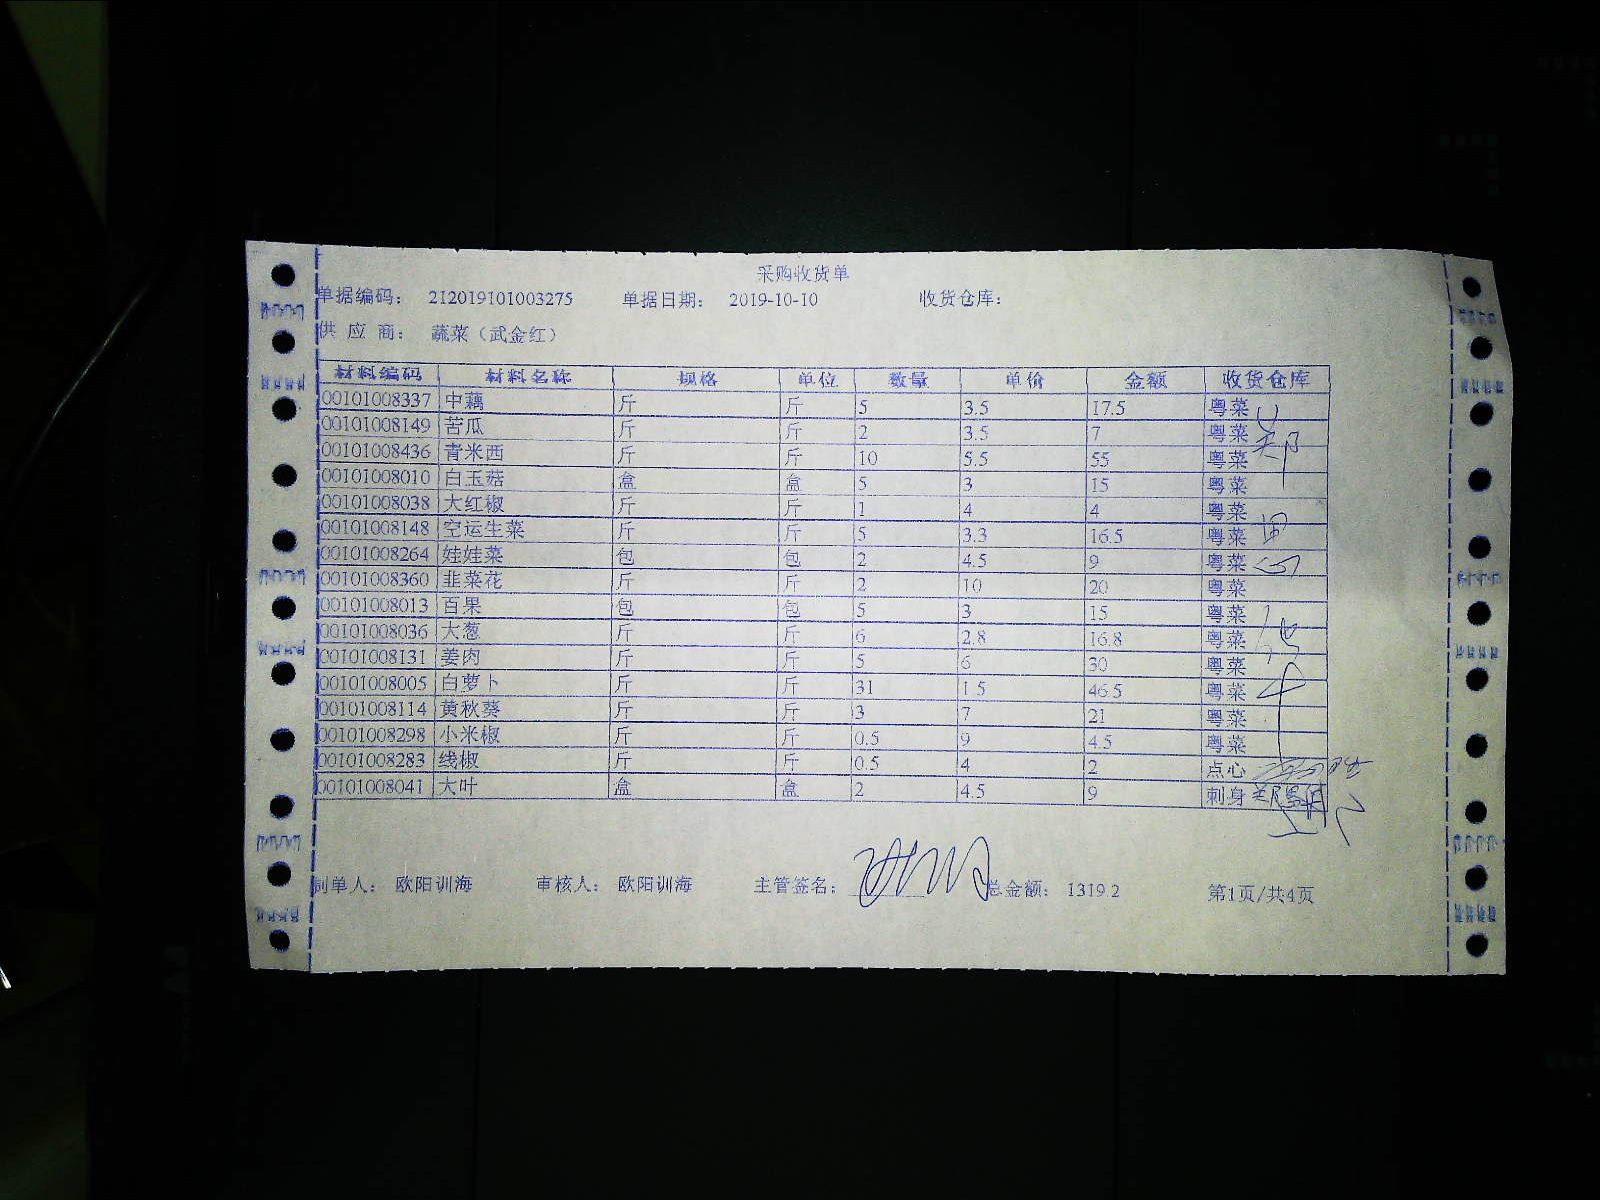 采购收货单
单据编码： 212019101003275 单据日期： 2019-10-10 收货仓库：
供 应 商： 蔬菜（武金红）
材料编码 材料名称 规格 单位 数量 单价 金额 收货仓库
00101008337 中藕 斤 斤 5 3.5 17.5 粤菜
00101008149 苦瓜 斤 斤 2 3.5 7 粤菜
00101008436 青米西 斤 斤 10 5.5 55 粤菜
00101008010 白玉菇 盒 盒 5 3 15 粤菜
00101008038 大红椒 斤 斤 1 4 4 粤菜
00101008148 空运生菜 斤 斤 5 3.3 16.5 粤菜
00101008264 娃娃菜 包 包 2 4.5 9 粤菜
00101008360 韭菜花 斤 斤 2 10 20 粤菜
00101008013 百果 包 包 5 3 15 粤菜
00101008036 大葱 斤 斤 6 2.8 16.8 粤菜
00101008131 姜肉 斤 斤 5 6 30 粤菜
00101008005 白萝卜 斤 斤 31 1.5 46.5 粤菜
00101008114 黄秋葵 斤 斤 3 7 21 粤菜
00101008298 小米椒 斤 斤 0.5 9 4.5 粤菜
00101008283 线椒 斤 斤 0.5 4 2 点心
00101008041 大叶 盒 盒 2 4.5 9 刺身
制单人： 欧阳训海 审核人： 欧阳训海 主管签名： 总金额： 1319.2 第1页/共4页